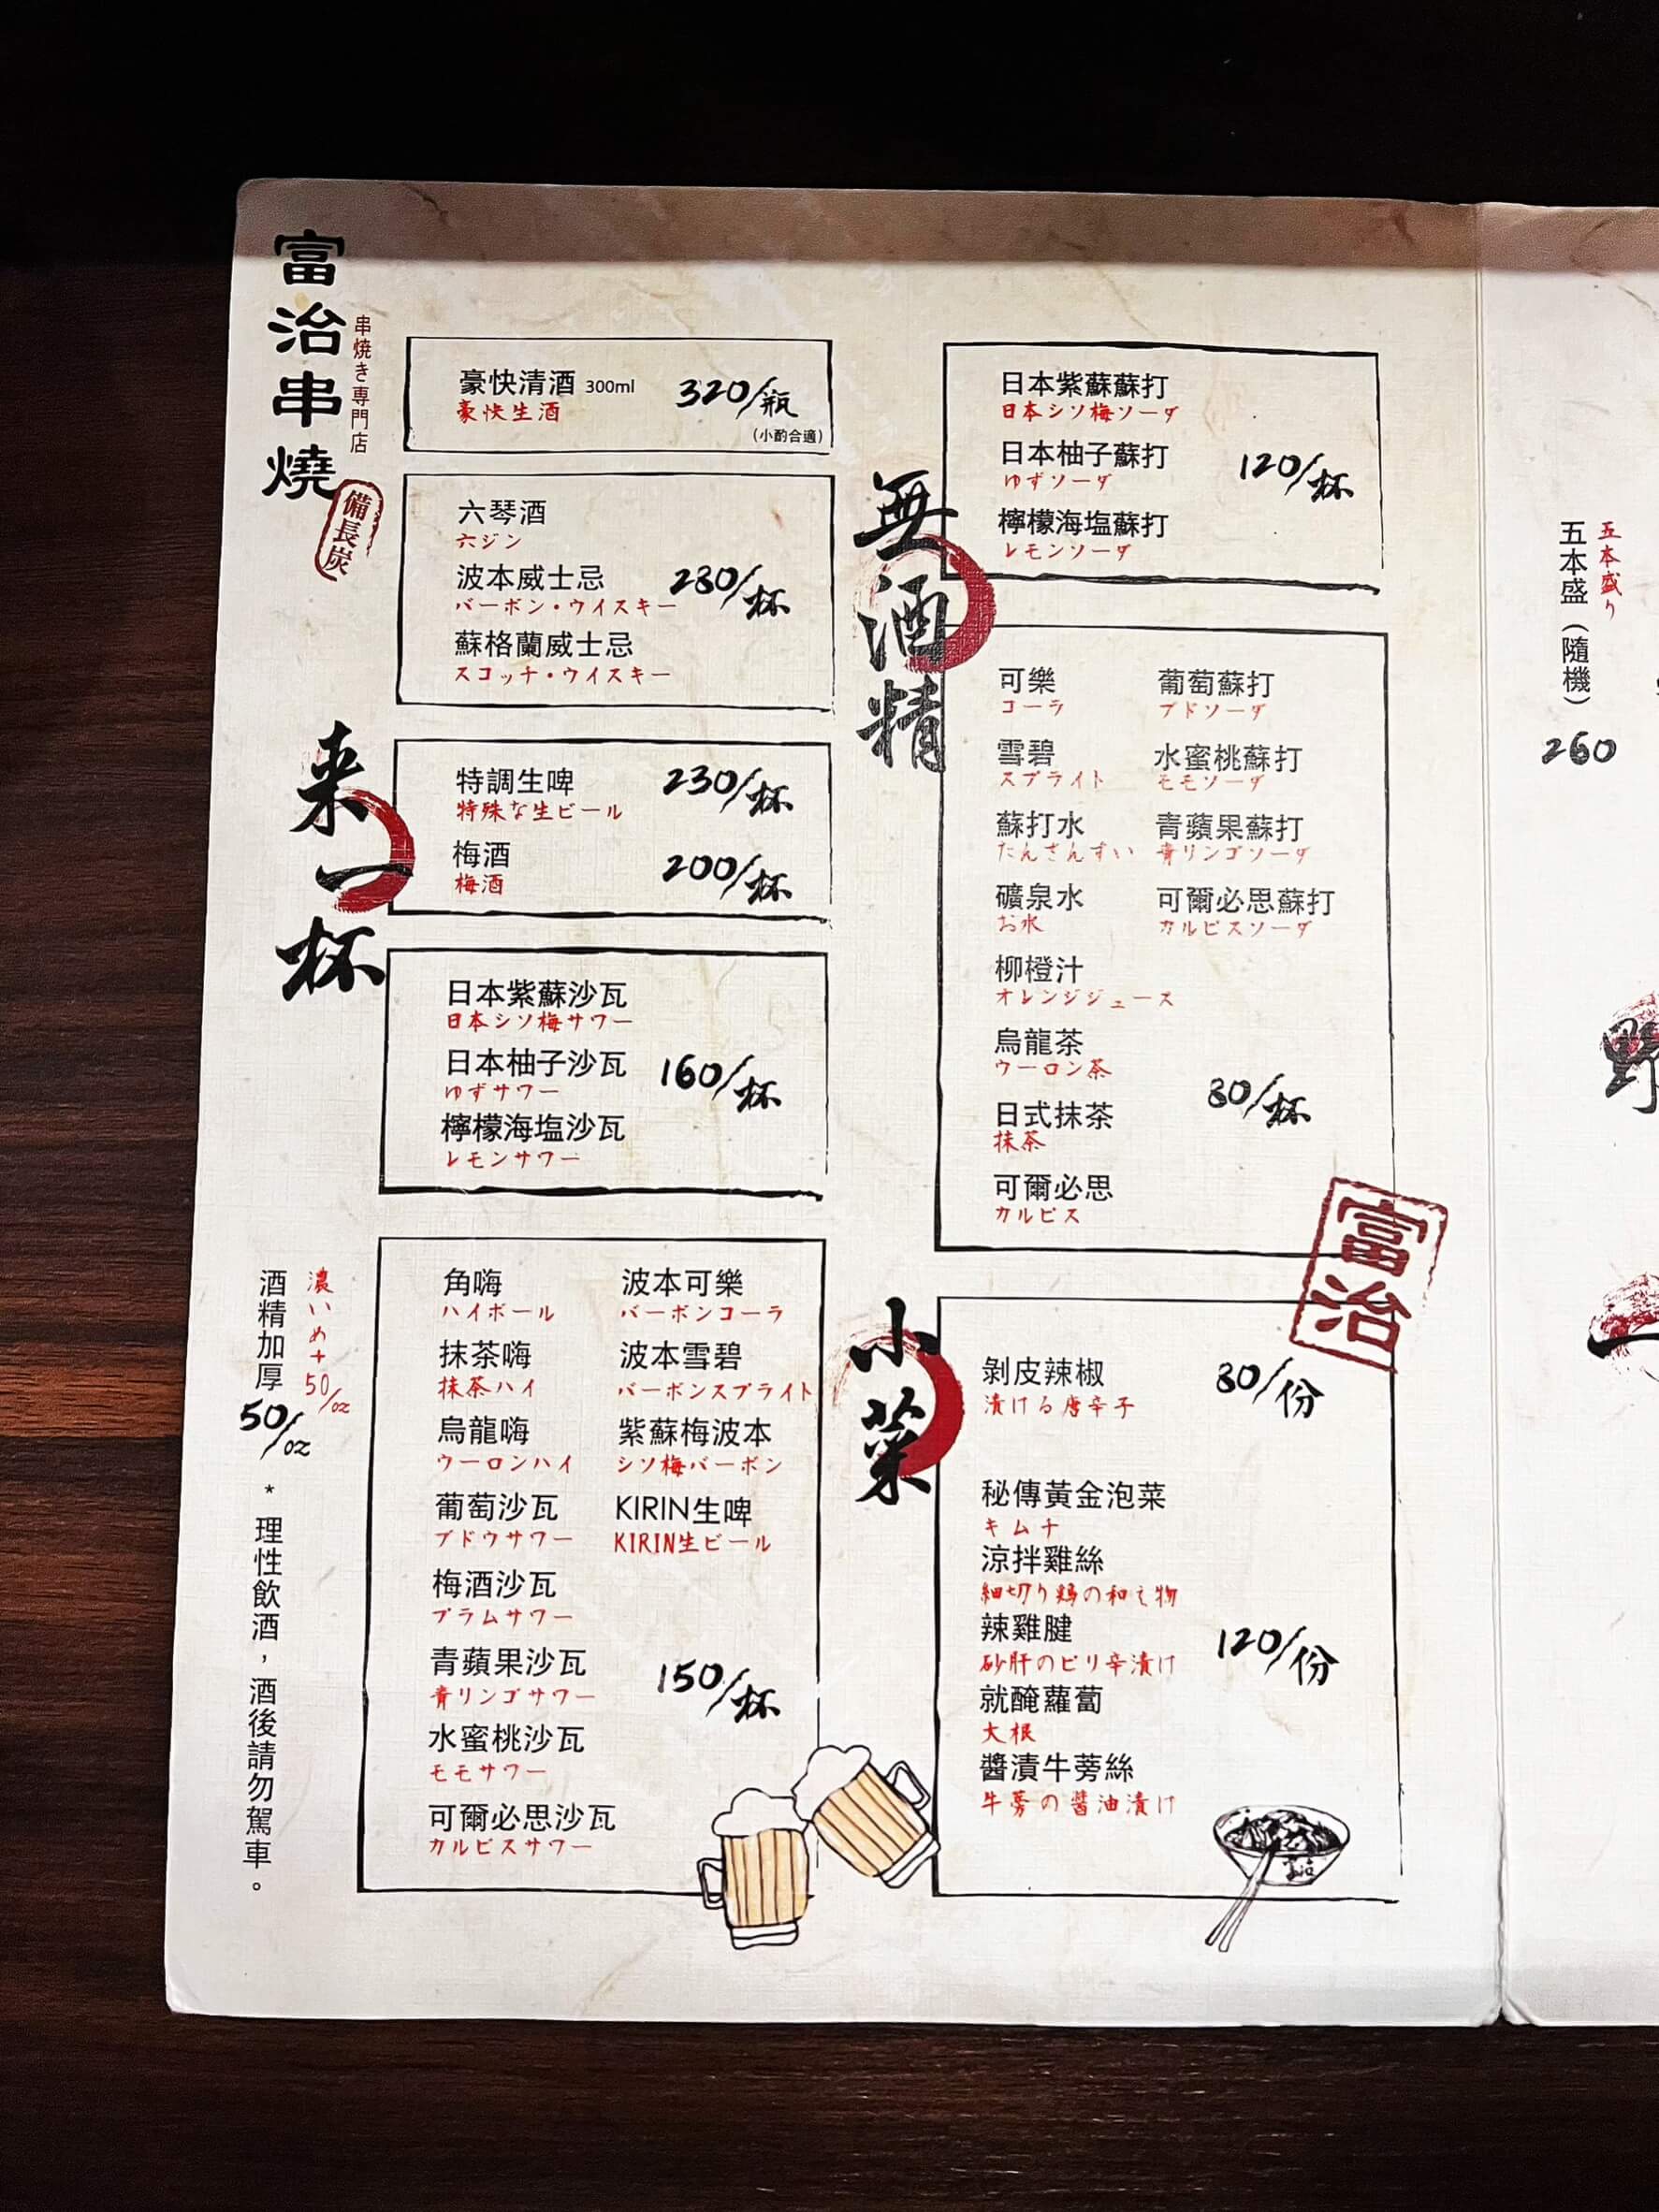 富治串燒
串焼き専門店
備長炭
来一杯
豪快清酒 300ml 320/瓶
豪快生酒
(小酌合適)
六琴酒
六ジン
波本威士忌 280/杯
バーボン・ウイスキー
蘇格蘭威士忌
スコッチ・ウイスキー
特調生啤 230/杯
特殊な生ビール
梅酒 200/杯
梅酒
日本紫蘇沙瓦
日本シソ梅サワー
日本柚子沙瓦 160/杯
ゆずサワー
檸檬海塩沙瓦
レモンサワー
角嗨 波本可樂
ハイボール バーボンコーラ
抹茶嗨 波本雪碧
抹茶ハイ バーボンスプライト
烏龍嗨 紫蘇梅波本
ウーロンハイ シソ梅バーボン
葡萄沙瓦 KIRIN生啤
ブドウサワー KIRIN生ビール
梅酒沙瓦
プラムサワー
青蘋果沙瓦 150/杯
青リンゴサワー
水蜜桃沙瓦
モモサワー
可爾必思沙瓦
カルピスサワー
濃いめ+50/oz
酒精加厚50/oz
*理性飲酒,酒後請勿駕車。
無酒精
日本紫蘇蘇打
日本シソ梅ソーダ
日本柚子蘇打 120/杯
ゆずソーダ
檸檬海塩蘇打
レモンソーダ
可樂 葡萄蘇打
コーラ ブドソーダ
雪碧 水蜜桃蘇打
スプライト モモソーダ
蘇打水 青蘋果蘇打
たんさんすい 青リンゴソーダ
礦泉水 可爾必思蘇打
お水 カルピスソーダ
柳橙汁
オレンジジュース
烏龍茶
ウーロン茶
日式抹茶 80/杯
抹茶
可爾必思
カルピス
富治
小菜
剝皮辣椒 80/份
漬ける唐辛子
秘傳黃金泡菜
キムチ
涼拌雞絲
細切り鶏の和え物
辣雞腱 120/份
砂肝のピリ辛漬け
就醃蘿蔔
大根
醬漬牛蒡絲
牛蒡の醤油漬け
五本盛り
五本盛(隨機)
260
野